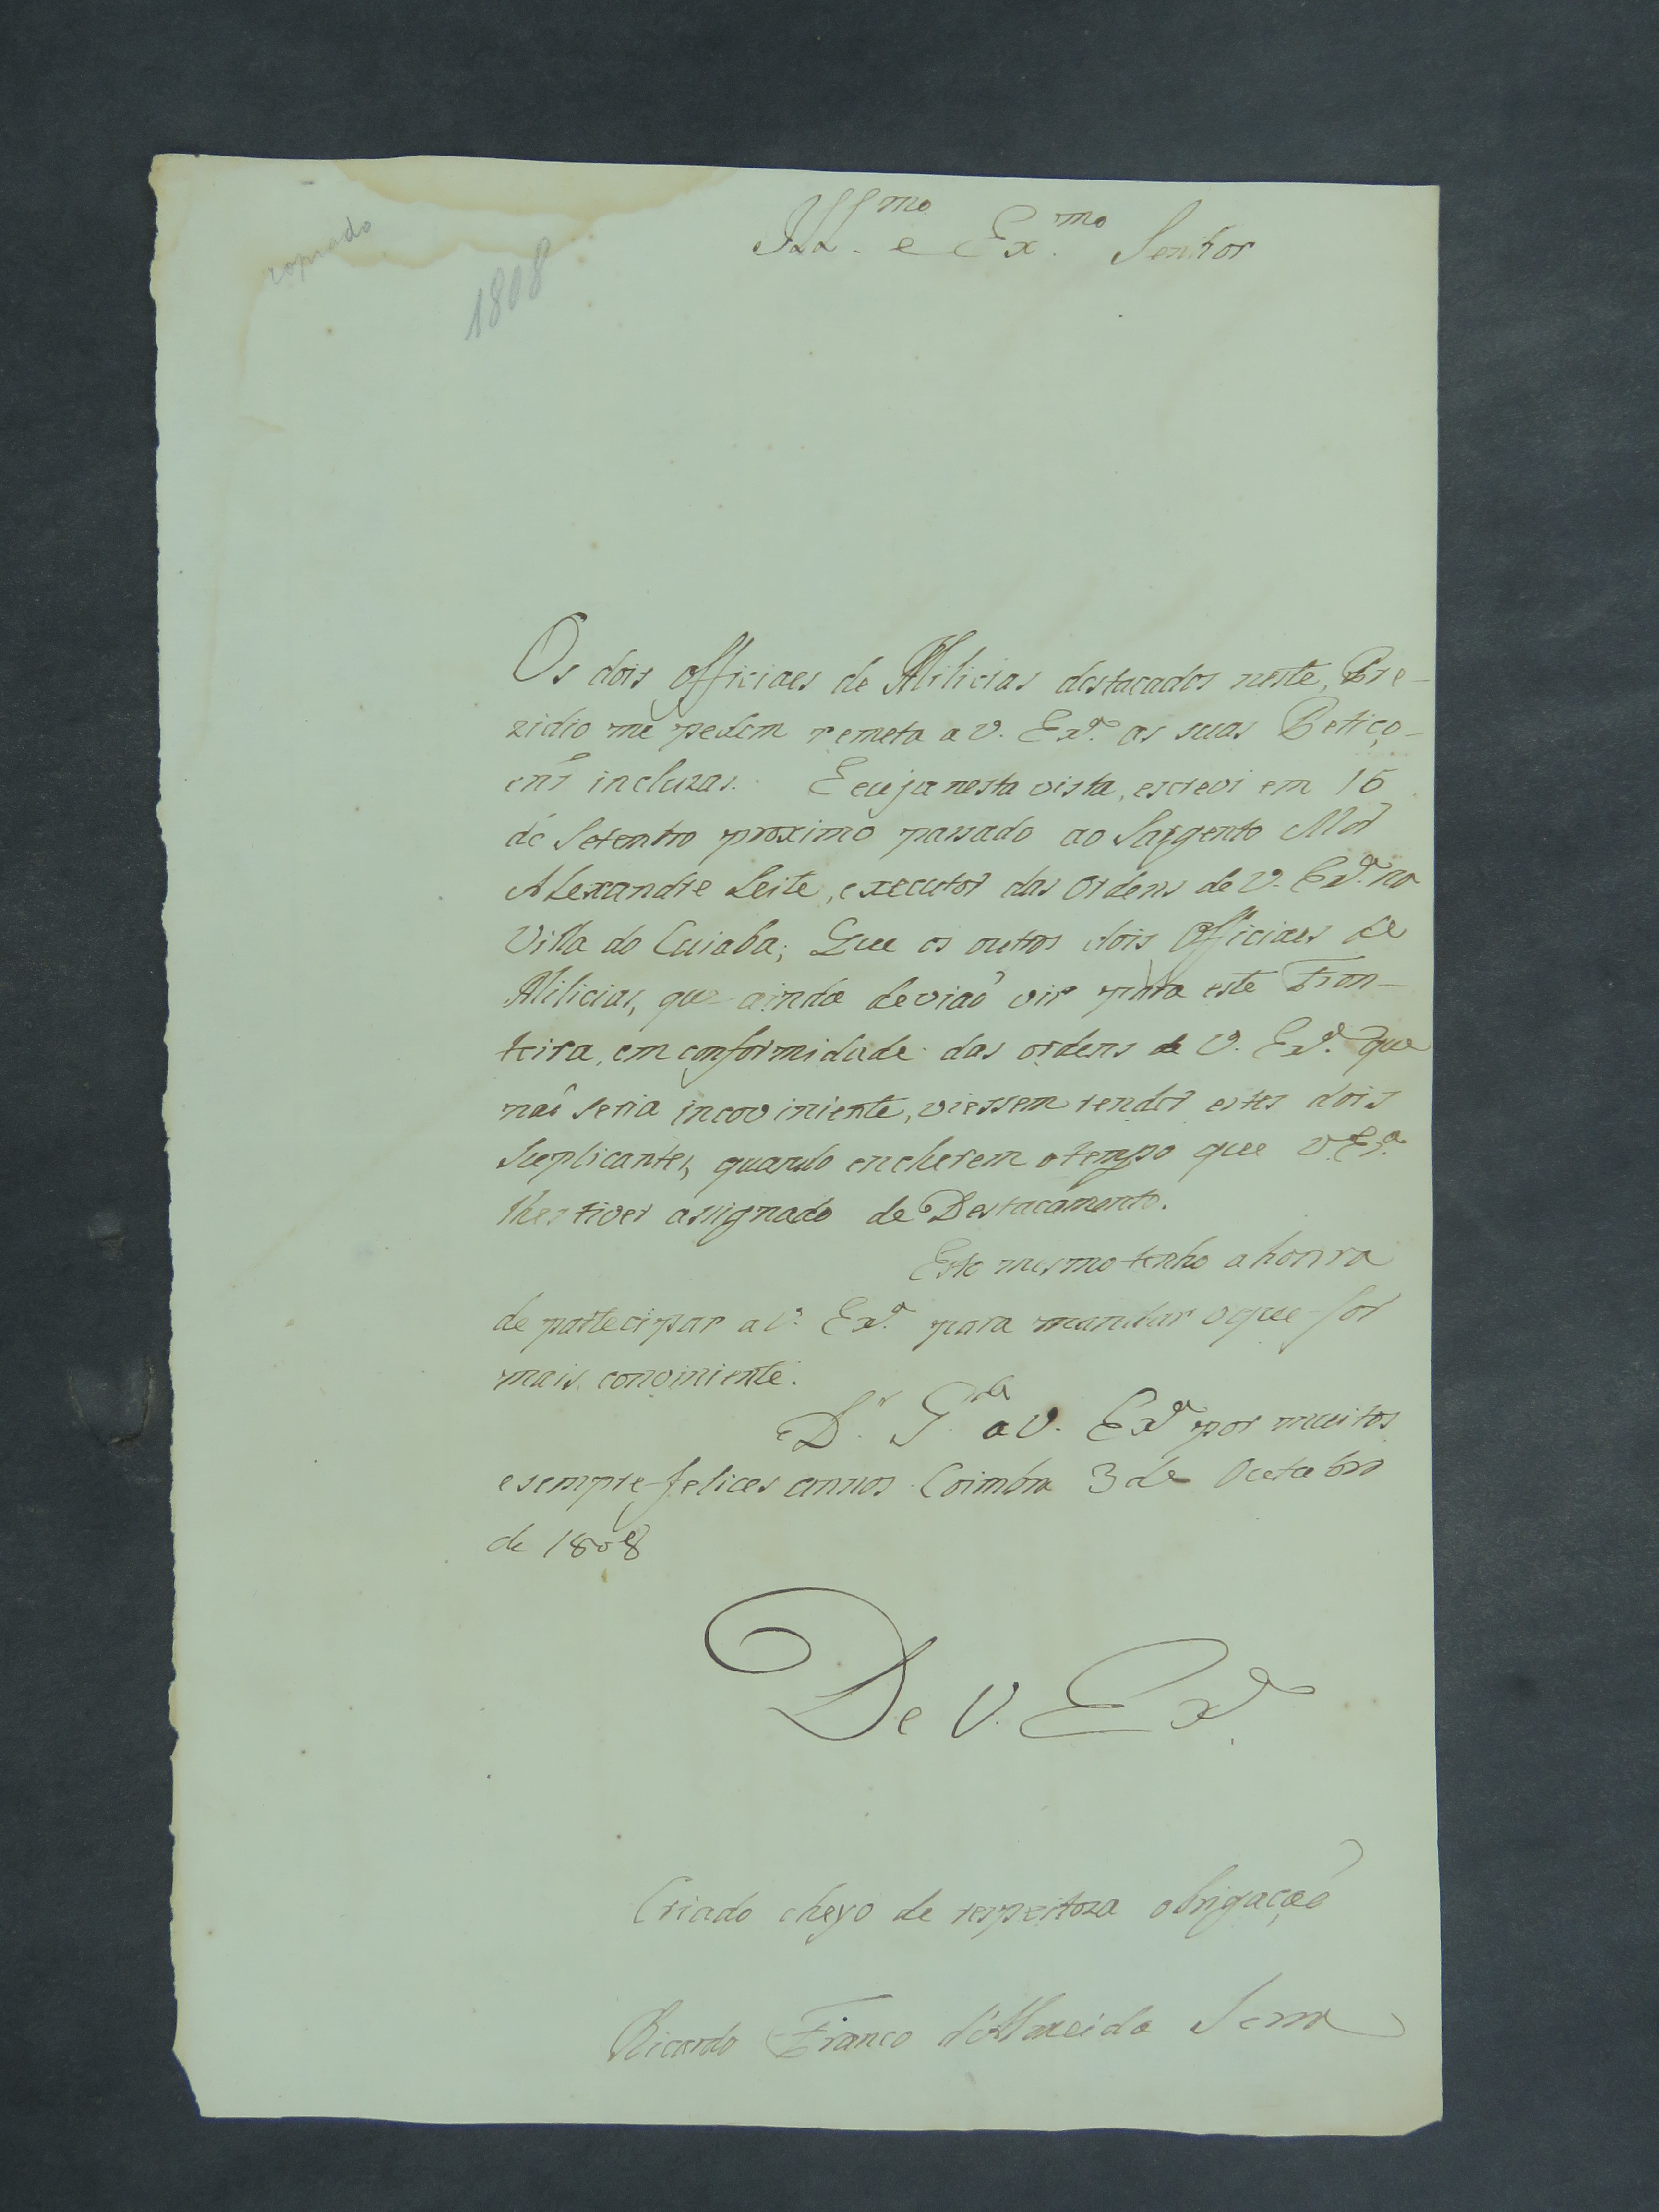 copiado
1808
Ill.mo e Ex.mo Senhor
Os dois officiaes de Milicias destacados neste Pre-
zidio me pedem remeta a V. Ex.a as suas Petiço-
ens incluzas. E eu ja nesta vista, escrevi em 16
de Setembro proximo passado ao Sargento Mor
Alexandre Leite, executor das ordens de V. Ex.a na
Villa do Cuiaba; Que os outros dois Officiaes de
Milicias, que ainda deviaõ vir para este Fron-
teira, em conformidade das ordens de V. Ex.a que
naõ seria incoviniente, viessem render estes dois
Suplicantes, quando encherem o tempo que V. Ex.a
lhes tiver assignado de Destacamento.
Este mesmo tenho a honra
de partecipar a V. Ex.a para mandar o que for
mais conviniente.
D.s G.de a V. Ex.a por muitos
e sempre felices annos Coimbra 3 de Octubro
de 1808
De V. Ex.a
Criado cheyo de respeitoza obrigaçaõ
Ricardo Franco d'Almeida Serra